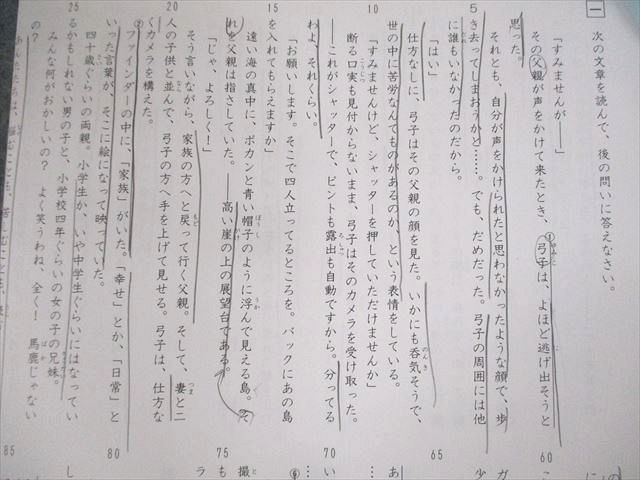 一 次の文章を読んで、後の問いに答えなさい。
「すみませんが――」
その父親が声をかけて来たとき、①弓子は、よほど逃げ出そうと
思った。
それとも、自分が声をかけられたと思わなかったような顔で、歩
き去ってしまおうかと……。でも、だめだった。弓子の周囲には他
に誰もいなかったのだから。
「はい」
仕方なしに、弓子はその父親の顔を見た。いかにも呑気そうで、
世の中に苦労なんてものがあるのか、という表情をしている。
「すみませんけど、シャッターを押していただけませんか」
断る口実も見付からないまま、弓子はそのカメラを受け取った。
――これがシャッターで、ピントも露出も自動ですから。分ってる
わよ、それくらい。
「お願いします。そこで四人立ってるところを。バックにあの島
を入れてもらえますか」
遠い海の真中に、ポカンと青い帽子のように浮んで見える島。そ
れを父親は指さしていた。――高い崖の上の展望台である。
「じゃ、よろしく！」
そう言いながら、家族の方へと戻って行く父親。そして、妻と二
人の子供と並んで、弓子の方へ手を上げて見せる。弓子は、仕方な
くカメラを構えた。
②ファインダーの中に、「家族」がいた。「幸せ」とか、「日常」と
いった言葉が、そこに絵になって映っていた。
四十歳ぐらいの両親。小学生か、いや中学生ぐらいにはなってい
るかもしれない男の子と、小学校四年ぐらいの女の子の兄妹。
みんな何がおかしいの？ よく笑うわね、全く！ 馬鹿じゃない
の？
5
10
15
20
25
60
65
70
75
80
85